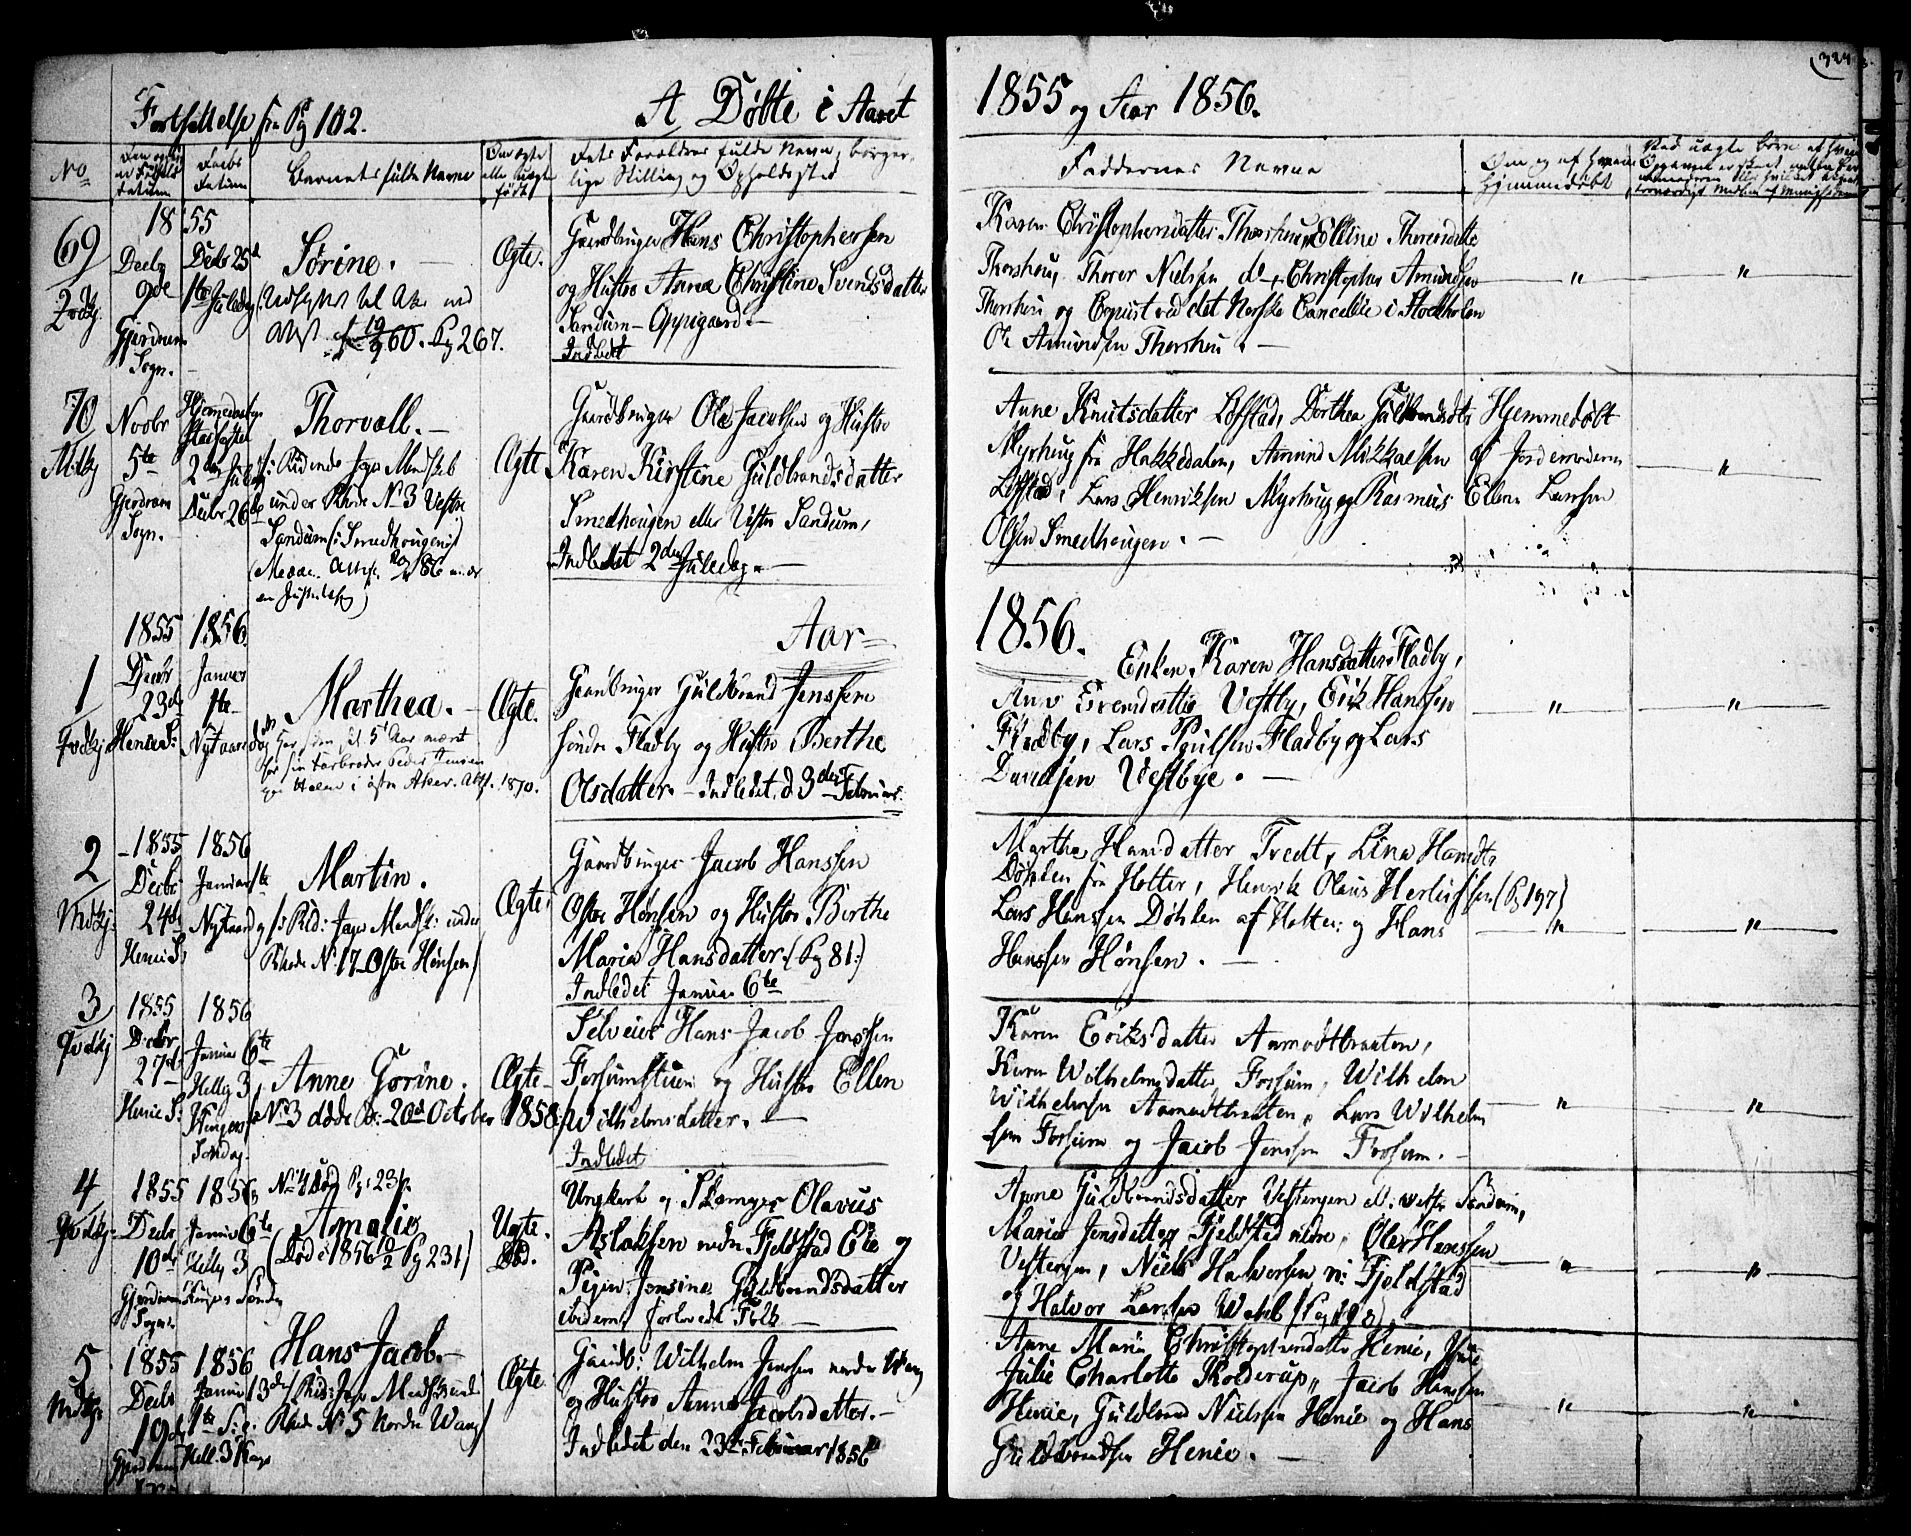 Fortsættelse fra Pg 102.
A Døbte i Aaret 1855 og Aar 1856.
No
Barnets fulde Navn
Om ægte eller uægte født
Dets Forældres fulde Navn, borgerlige Stilling og Opholdsted
Faddernes Navne
Om og af hvem Hjemmedøbt
1855
69
Decbr 9de
Gjerdrum Sogn.
Decbr 25de
1te Juledag
Sørine.
Pg 267.
Ægte.
Gaardbruger Hans Christophersen
og Hustro Anne Christine Svendsdatter
Sandum - Oppigaard.
Indledt
Karen Christophersdatter Thorshou, Elline Thorersdatte
Thorshou, Thorer Nielsen do, Christopher Amundsen
Thorshou og Copiist ved det Norske Cancellie i Stockholm
Ole Amundsen Thorshou.
70
Novbr 5te
Gjerdrum Sogn.
2den Juledag
Decbr 26de
Thorvall.
under Rode No 3 Vestre
Sandum (: Smedhougen)
Ægte
Gaardbruger Ole Jacobsen og Hustro
Karen Kirstine Guldbrandsdatter
Smedhougen eller Vestre Sandum,
Indledet 2den Juledag.
Anne Knutsdatter Løfstad, Dorthea Guldbrandsdtr
Myrhug fra Hakkedalen, Amund Mikkaelsen
Løfstad, Lars Henriksen Myrhug og Rasmus
Olsen Smedhougen.
Hjemmedøbt
af Jordemoderen
Ellen Larsen
1855 1856
Aar 1856.
1
Decbr 23de
Henie S:
Januar 1te
Nytaarsdag
Marthea.
har siden sit 5te Aar været
hos sin Farbroder Peder Jensen
1870.
Ægte.
Gaardbruger Guldbrand Jenssen
søndre Fladby og Hustro Berthe
Olsdatter. - Indledet d. 3die Februar.
Enken Karen Hansdatter Fladby,
Anne Svendsdatter Vestby, Erik Hanssen
Fladby, Lars Poulsen Fladby og Lars
Danielsen Vestbye.
1855 1856
2
Decbr 24de
Henie S:
Januar 1te
Nytaarsdag
Martin.
Rode No 17 Østre Hønsen)
Ægte
Gaardbruger Jacob Hanssen
Østre Hønsen og Hustro Berthe
Maria Hansdatter. (Pg 81:)
Indledet Januar 6te
Marthe Hansdatter Tredt, Lina Hansdtr
Døhlen fra Holter, Henrik Olaus Herlufsen (Pg 197)
Lars Hanssen Døhlen af Holter: og Hans
Hanssen Hønsen.
1855 1856
3
Decbr 27de
Henie S:
Januar 6te
Hellig 3
Kongers
Søndag.
Anne Gorine.
(No 3 døde d: 20de October 1858)
Ægte
Selveier Hans Jacob Jenssen
Forsumstuen og Hustro Ellen
Wilhelmsdatter.
Indledet
Karen Eriksdatter Aamodtbraaten,
Karen Wilhelmsdatter Forsum, Wilhelm
Wilhelmsen Aamodtbraaten, Lars Wilhelm
sen Forsum og Jacob Jenssen Forsum.
1855 1856
4
Decbr 10de
Gjerdrum Sogn.
Januar 6te
Hellig 3
Kongers Søndag
No 4 død Pg: 231.
Amalie
(Død i 1856 Pg 231)
Uægte.
Død.
Ungkarl og Slømager Olavus
Aslaksen nedre Fjeldstad Eie og
Pigen Jensine Guldbrandsdatter
ibidem, forlovede Folk
Anne Guldbrandsdatter Vestengen ell: vestre Sandum,
Maria Jensdatter Fjeldstad nedre, Ole Hanssen
Vestengen, Niels Halvorsen n: Fjeldstad
og Halvor Larssen Wahl
1855 1856
5
Decbr 19de
Gjerdrum
Januar 13de
1te S: e:
Hell. 3 Kong
Hans Jacob.
Rode No 5 Nordre Wang)
Ægte
Gaardb: Wilhelm Jenssen nordre Wang
og Hustro Anne Jacobsdatter.
Indledet den 23de Februar 1856
Anne Maria Christophersdatter Henie,
Julie Charlotte Kolderup, Jacob Hanssen
Henie, Guldbrand Nielsen Henie og Hans
Guldbrandsen Henie.